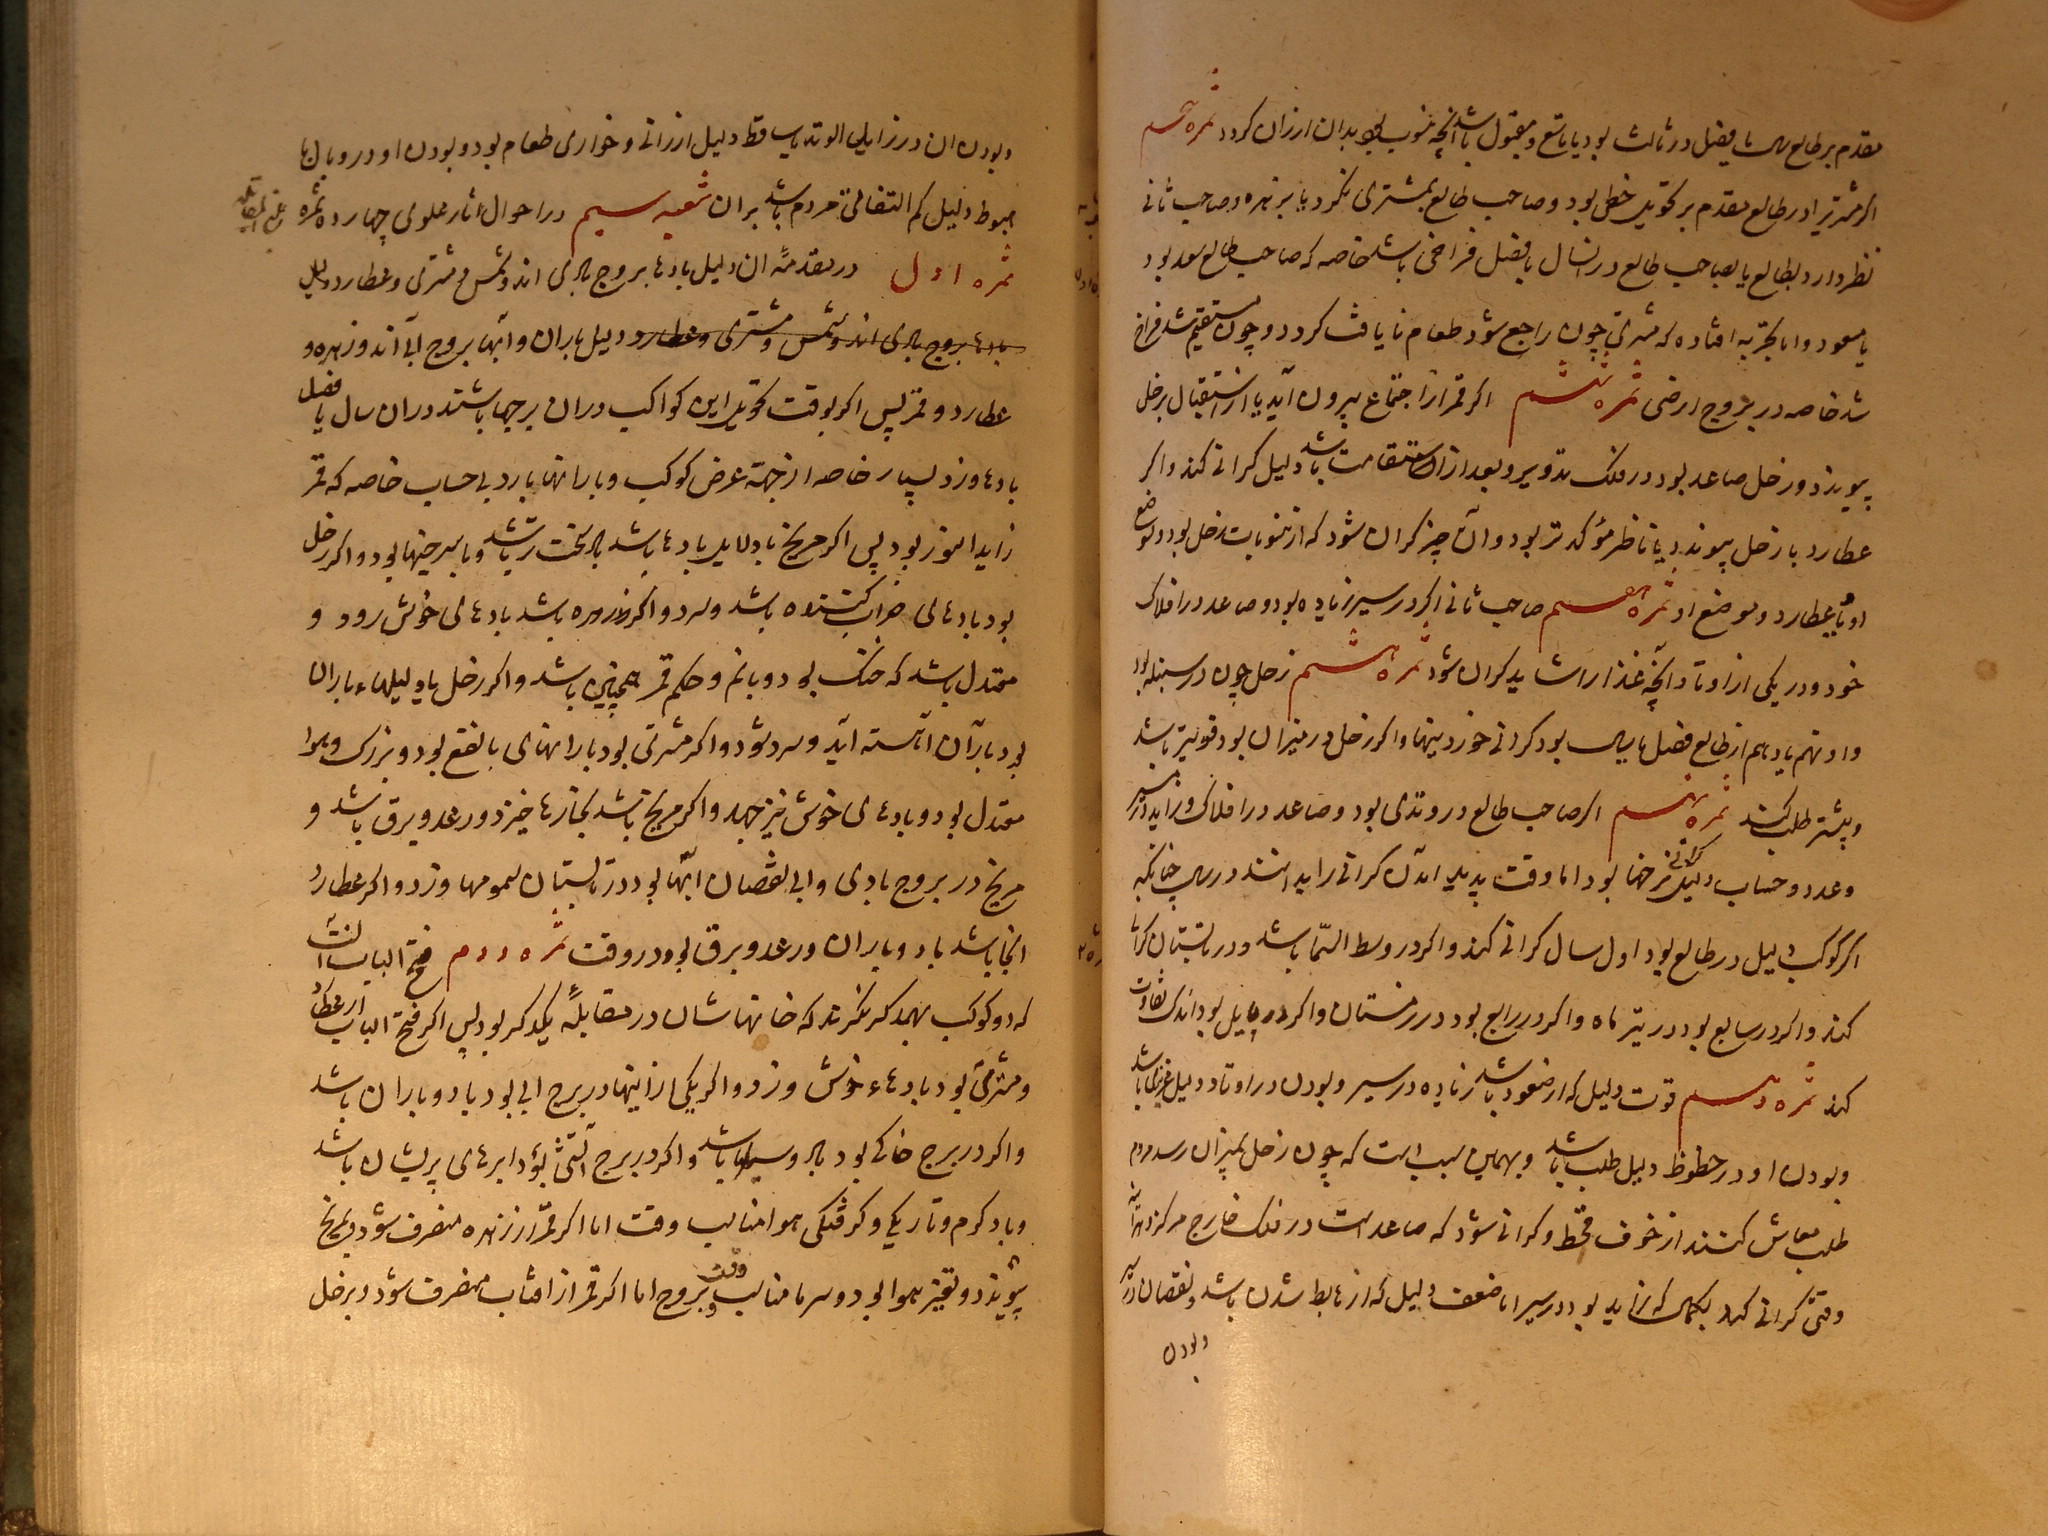 مقدم بر طالع سال یا فصل در ثالث بود یا تاسع و مقبول باشد آنچه منسوب بود بدان ارزان کردد ثمره پنجم
اکر مشتری در طالع مقدم بر تحویل خطی بود و صاحب طالع بمشتری نکرد یا بر زهره و صاحب ثانی
نظر دارد بطالع یا بصاحب طالع در انسال یا فصل فراخی باشد خاصه که صاحب طالع سعد بود
یا مسعود و اما بتجربه افتاده که مشتری چون راجع شود طعام نایافت کردد و چون مستقیم شد فراخ
شد خاصه در بروج ارضی ثمره ششم اکر قمر از اجتماع بیرون آید یا از استقبال بزحل
پیوندد و زحل صاعد بود در فلک تدویر و بعد از ان استقامت باشد دلیل کرانی کند و اکر
عطارد با زحل پیوندد یا ناظر مؤکدتر بود و آن چیز کران شود که از منسوبات زحل بود و موضع
او یا عطارد و موضع او ثمره هفتم صاحب ثانی اکر در سیر زیاده بود و صاعد در افلاک
خود و در یکی از اوتاد آنچه غذا را شاید کران شود ثمره هشتم زحل چون در سنبله بود
و او نهم یا دهم از طالع فصل یا سال بود کرانی خوردنیها و اکر زحل در میزان بود قویتر باشد
و بیشتر طلب کنند ثمره نهم اکر صاحب طالع در وتدی بود و صاعد در افلاک و زاید در سیر
و عدد و حساب دلیل کرانی نرخها بود اما وقت پدید آمدن کرانی را بدانند در سال چنانکه
اکر کوکب دلیل در طالع بود اول سال کرانی کند و اکر در وسط السما باشد و در تابستان کرانی
کند و اکر در سابع بود در تیر ماه و اکر در رابع بود در زمستان و اکر در مایل بود اندک تفاوت
کند ثمره دهم قوت دلیل که از صعود باشد زیاده در سیر و بودن در اوتاد دلیل عزیزی باشد
و بودن او در حظوظ دلیل طلب باشد و بهمین سبب است که چون زحل بمیزان رسد مردم
طلب معاش کنند از خوف قحط و کرانی شود که صاعد است در فلک خارج مرکز و در آن
وقتی کرانی کند بکمال که زاید بود در سیر اما ضعف دلیل که از هابط شدن باشد و نقصان در سیر
و بودن
و بودن ان در زایل الوتد یا ساقط دلیل ارزانی و خواری طعام بود و بودن او در وبال یا
هبوط دلیل کم التفاتی مردم باشد بران شعبه سیم در احوال آثار علوی چهارده ثمره
ثمره اول در مقدمه ان دلیل بادها بروج بادی اند و شمس و مشتری و عطارد دلیل
بادها بروج بادی اند و شمس و مشتری و عطارد دلیل باران و آبها بروج آبی آند و زهره و
عطارد و قمر پس اکر بوقت تحویل این کواکب دران برجها باشند دران سال یا فصل
بادها وزد بسیار خاصه از جهة عرض کوکب و بارانها بارد بی حساب خاصه که قمر
زاید النور بود پس اکر مریخ با دلایل بادها باشد باد سخت تر باشد و با سرخیها بود و اکر زحل
بود بادهای خراب کننده باشد و سرد و اکر زهره باشد بادهای خوش رود و
معتدل باشد که خنک بود و با نم و حکم قمر همچنین باشد و اکر زحل با دلیلهاء باران
بود باران آهسته آید و سرد شود و اکر مشتری بود بارانهای با نفع بود و بزرک و هوا
معتدل بود و بادهای خوش نیز جهد و اکر مریخ باشد بخارها خیزد و رعد و برق باشد و
مریخ در بروج بادی و آبی نقصان آبها بود در تابستان سمومها وزد و اکر عطارد
انجا باشد باد و باران و رعد و برق بود در وقت ثمره دوم فتح الباب آنست
که دو کوکب بهمدکر نکرند که خانهاشان در مقابله یکدکر بود پس اکر فتح الباب از عطارد
و مشتری بود بادهاء خوش وزد و اکر یکی از اینها در برج آبی بود باد و باران باشد
و اکر در برج خاکی بود باد و سرما باشد و اکر در برج آتشی بود ابرهای پریشان باشد
و باد کرم و تاریکی و کرفتکی هوا مناسب وقت اما اکر قمر از زهره منصرف شود و بمریخ
پیوندد و تغیر هوا بود و سرما مناسب وقت و بروج اما اکر قمر از آفتاب منصرف شود و بزحل